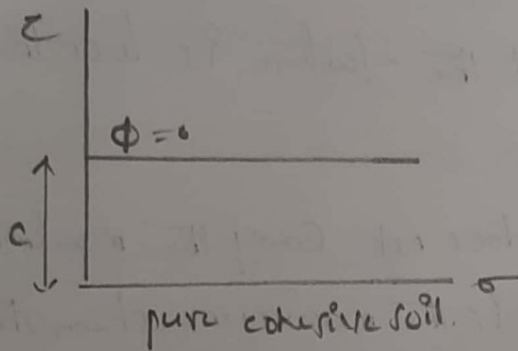 τ
Φ = 0
C
σ
pure cohesive soil.